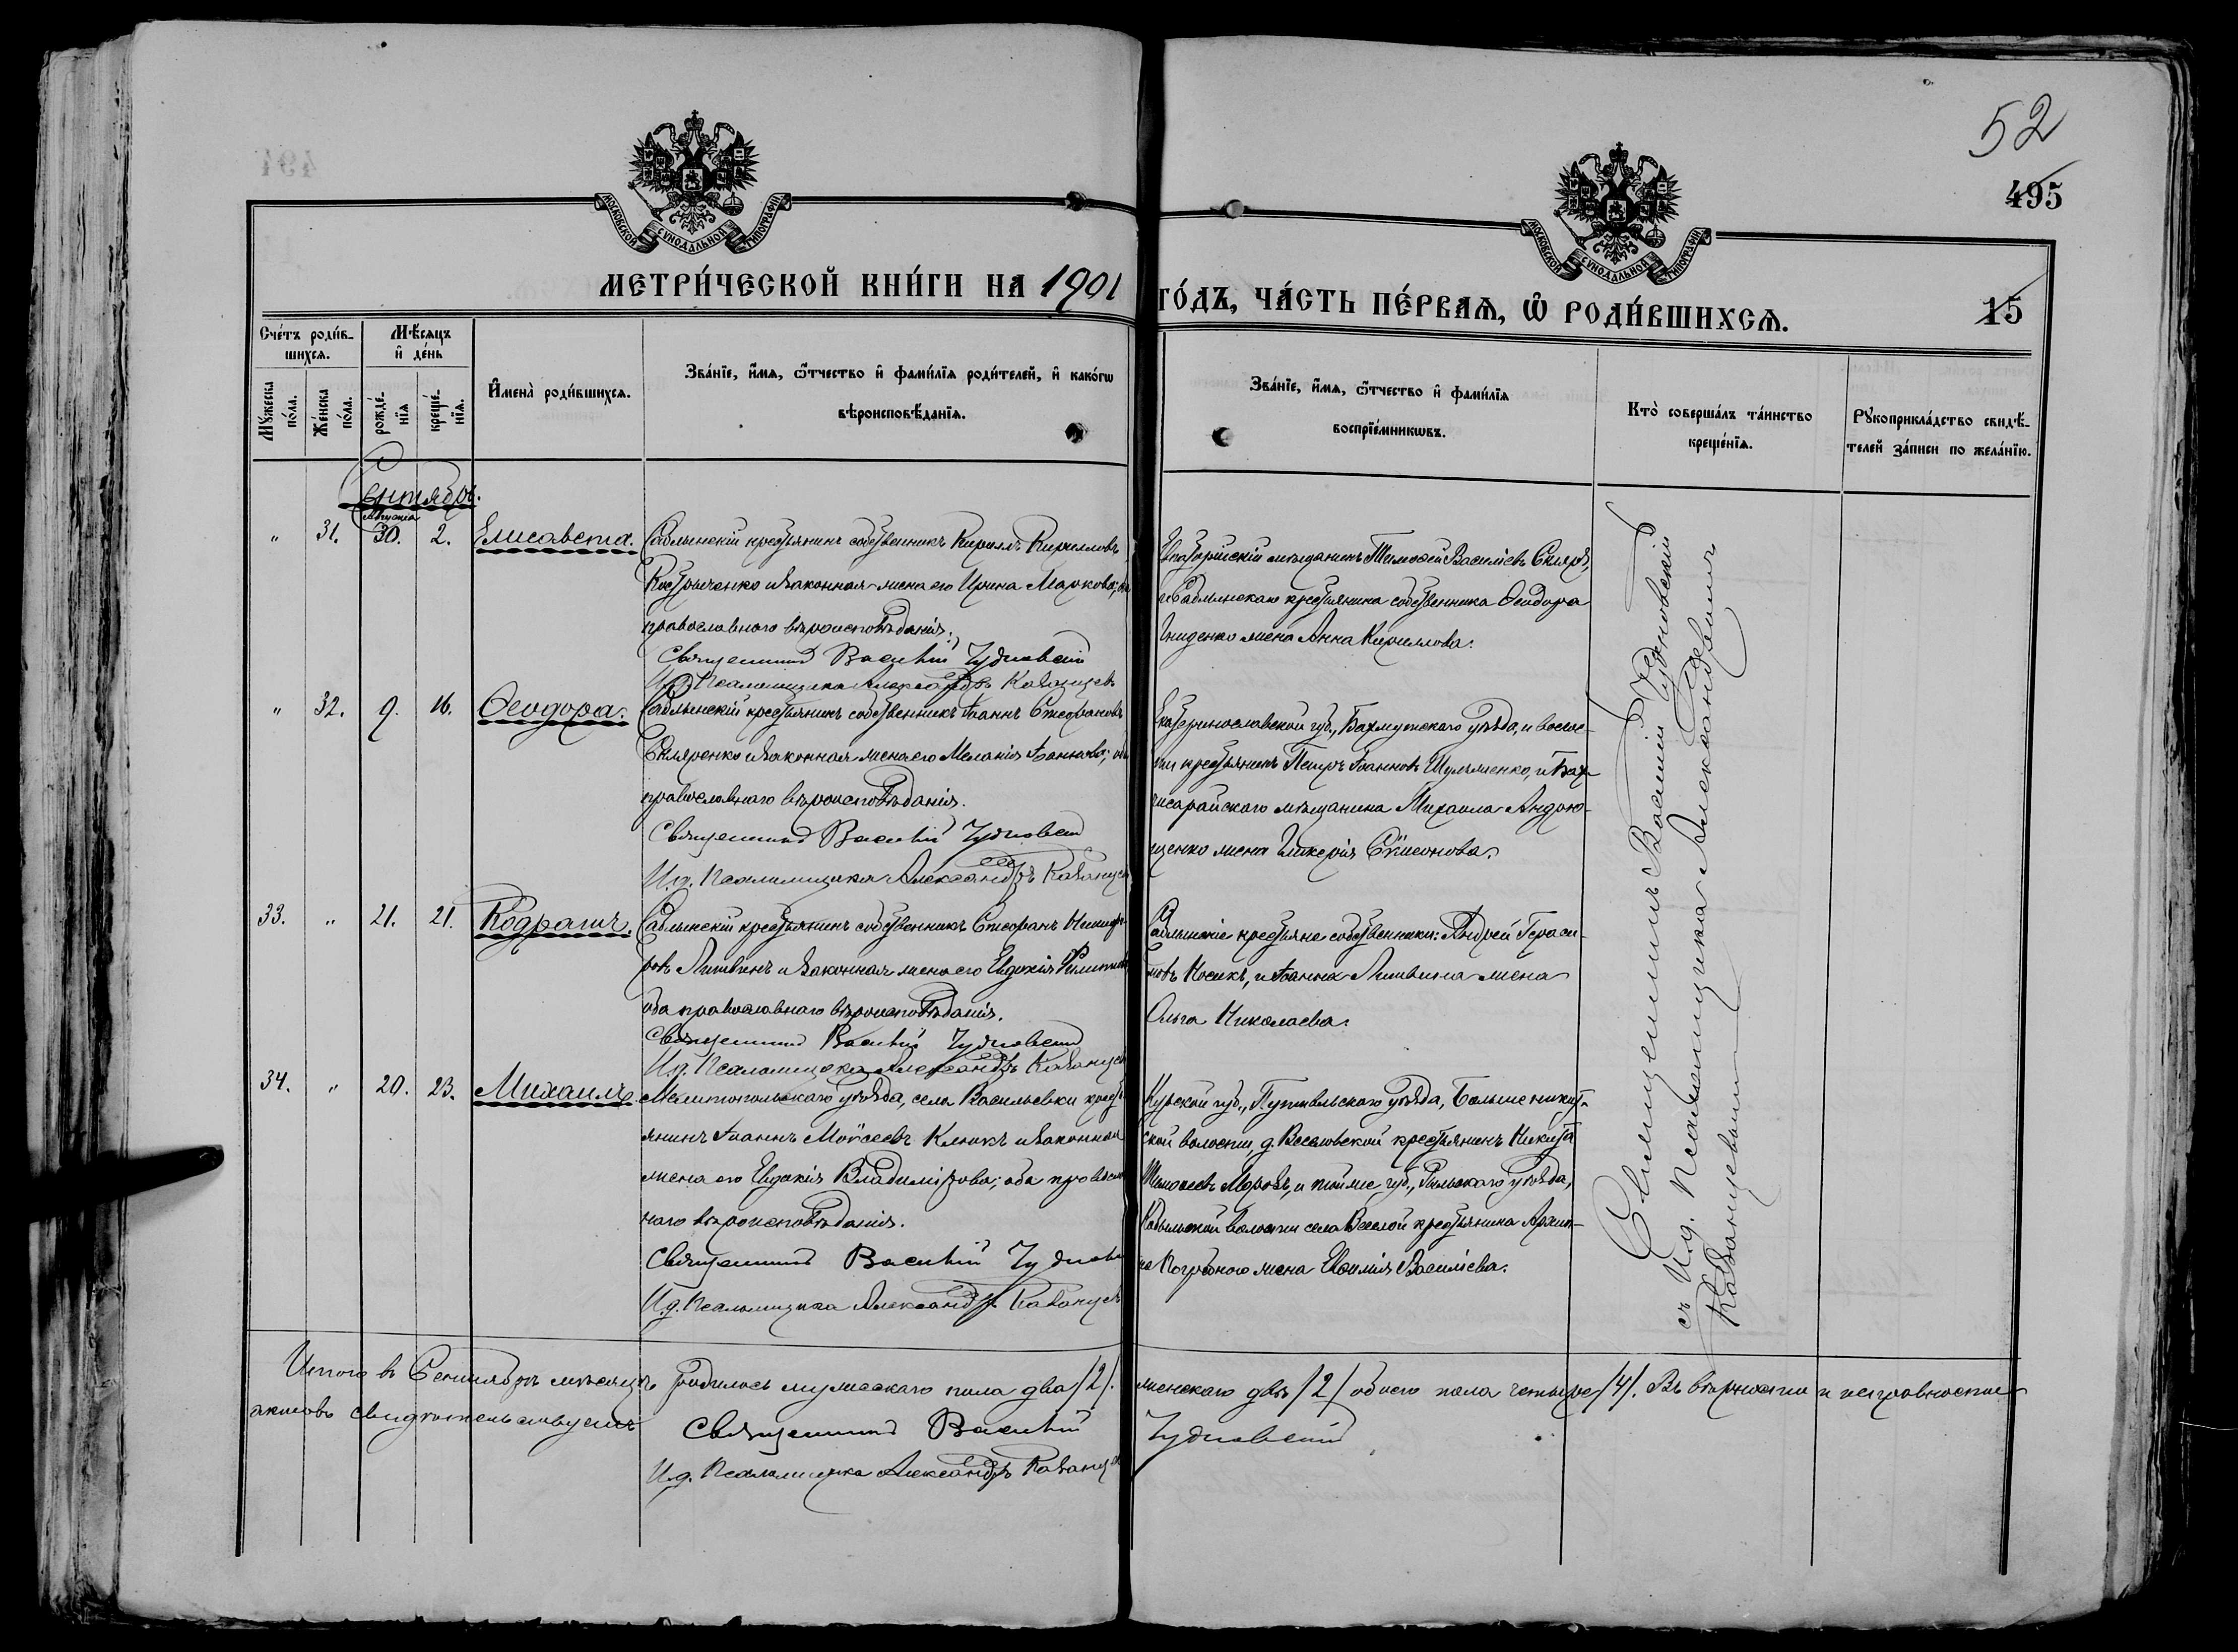 52
495
МОСКОВСКОЙ СѴНОДАЛЬНОЙ ТИПОГРАФІИ
МОСКОВСКОЙ СѴНОДАЛЬНОЙ ТИПОГРАФІИ
МЕТРИ́ЧЕСКОЙ КНИ́ГИ НА 1901 ГО́ДЪ, ЧА́СТЬ ПЕ́РВАѦ, Ѽ РОДИ́ВШИХСѦ.
15
Сче́тъ роди́в-
шихсѧ.
Мꙋ́жеска по́ла.
Же́нска по́ла.
Мѣ́сѧцъ
и҆ де́нь
рожде́-
нїѧ
креще́-
нїѧ.
И҆мена̀ роди́вшихсѧ.
Зва́нїе, и҆́мѧ, ѻ҆́тчество и҆ фами́лїѧ роди́телей, и҆ како́гѡ
вѣроисповѣ́данїѧ.
Зва́нїе, и҆́мѧ, ѻ҆́тчество и҆ фами́лїѧ
воспрїе́мникѡвъ.
Кто̀ соверша́лъ та́инство
креще́нїѧ.
Рꙋкоприкла́дство свидѣ́-
телей за́писи по жела́нїю.
Сентябрь.
Августа
" 31. 30. 2. Елисавета.
Саблынскій крестьянинъ собственникъ Кириллъ Кирилловъ
Костриченко и законная жена его Ирина Маркова;
православнаго вѣроисповѣданія.
Священникъ Василій Чудновскій
И.д. Псаломщика Александръ Казанцевъ
мѣщанинъ Тимоѳей Василіевъ Скляръ,
и Саблынскаго крестьянина собственника Ѳеодора
Гниденко жена Анна Кириллова.
" 32. 9. 16. Ѳеодора.
Саблынскій крестьянинъ собственникъ Іоаннъ Стефановъ
Скляренко и законная жена его Меланія Іоаннова;
православнаго вѣроисповѣданія.
Священникъ Василій Чудновскій
И.д. Псаломщика Александръ Казанцевъ
Екатеринославской губ., Бахмутскаго уѣзда, и волос-
ти крестьянинъ Петръ Іоанновъ Шульженко, и Бах-
чисарайскаго мѣщанина Михаила Андрю-
щенко жена Гликерія Сѵмеонова.
33. " 21. 21. Кодратъ.
Саблынскій крестьянинъ собственникъ Стефанъ Никифо-
ровъ Литвинъ и законная жена его Евдокія
оба православнаго вѣроисповѣданія.
Священникъ Василій Чудновскій
И.д. Псаломщика Александръ Казанцевъ
Саблынскіе крестьяне собственники: Андрей Гераси-
мовъ Носикъ, и Іоанна Литвина жена
Ольга Николаева.
34. " 20. 23. Михаилъ.
Мелитопольскаго уѣзда, села Васильевки кресть-
янинъ Іоаннъ Моѵсеевъ Клюкъ и законная
жена его Евдокія Владимірова; оба православ-
наго вѣроисповѣданія.
Священникъ Василій Чудновскій
И.д. Псаломщика Александръ Казанцевъ
Курской губ., Путивльскаго уѣзда, Больше
ской волости, д. Веселовской крестьянинъ Никита
Тимоѳеевъ Морозъ, и той же губ., Рыльскаго уѣзда,
волости села Веселой крестьянина Архип-
па Погребного жена Евфимія Василіева.
Священникъ Василій Ѳед. Чудновскій
съ И.д. Псаломщика Александромъ
Казанцевымъ
Итого въ Сентябрѣ мѣсяцѣ родилось мужескаго пола два /2/. женскаго двѣ /2/ обоего пола четыре /4/. Въ вѣрности и исправности
актовъ свидѣтельствуемъ
Священникъ Василій Чудновскій
И.д. Псаломщика Александръ Казанцевъ